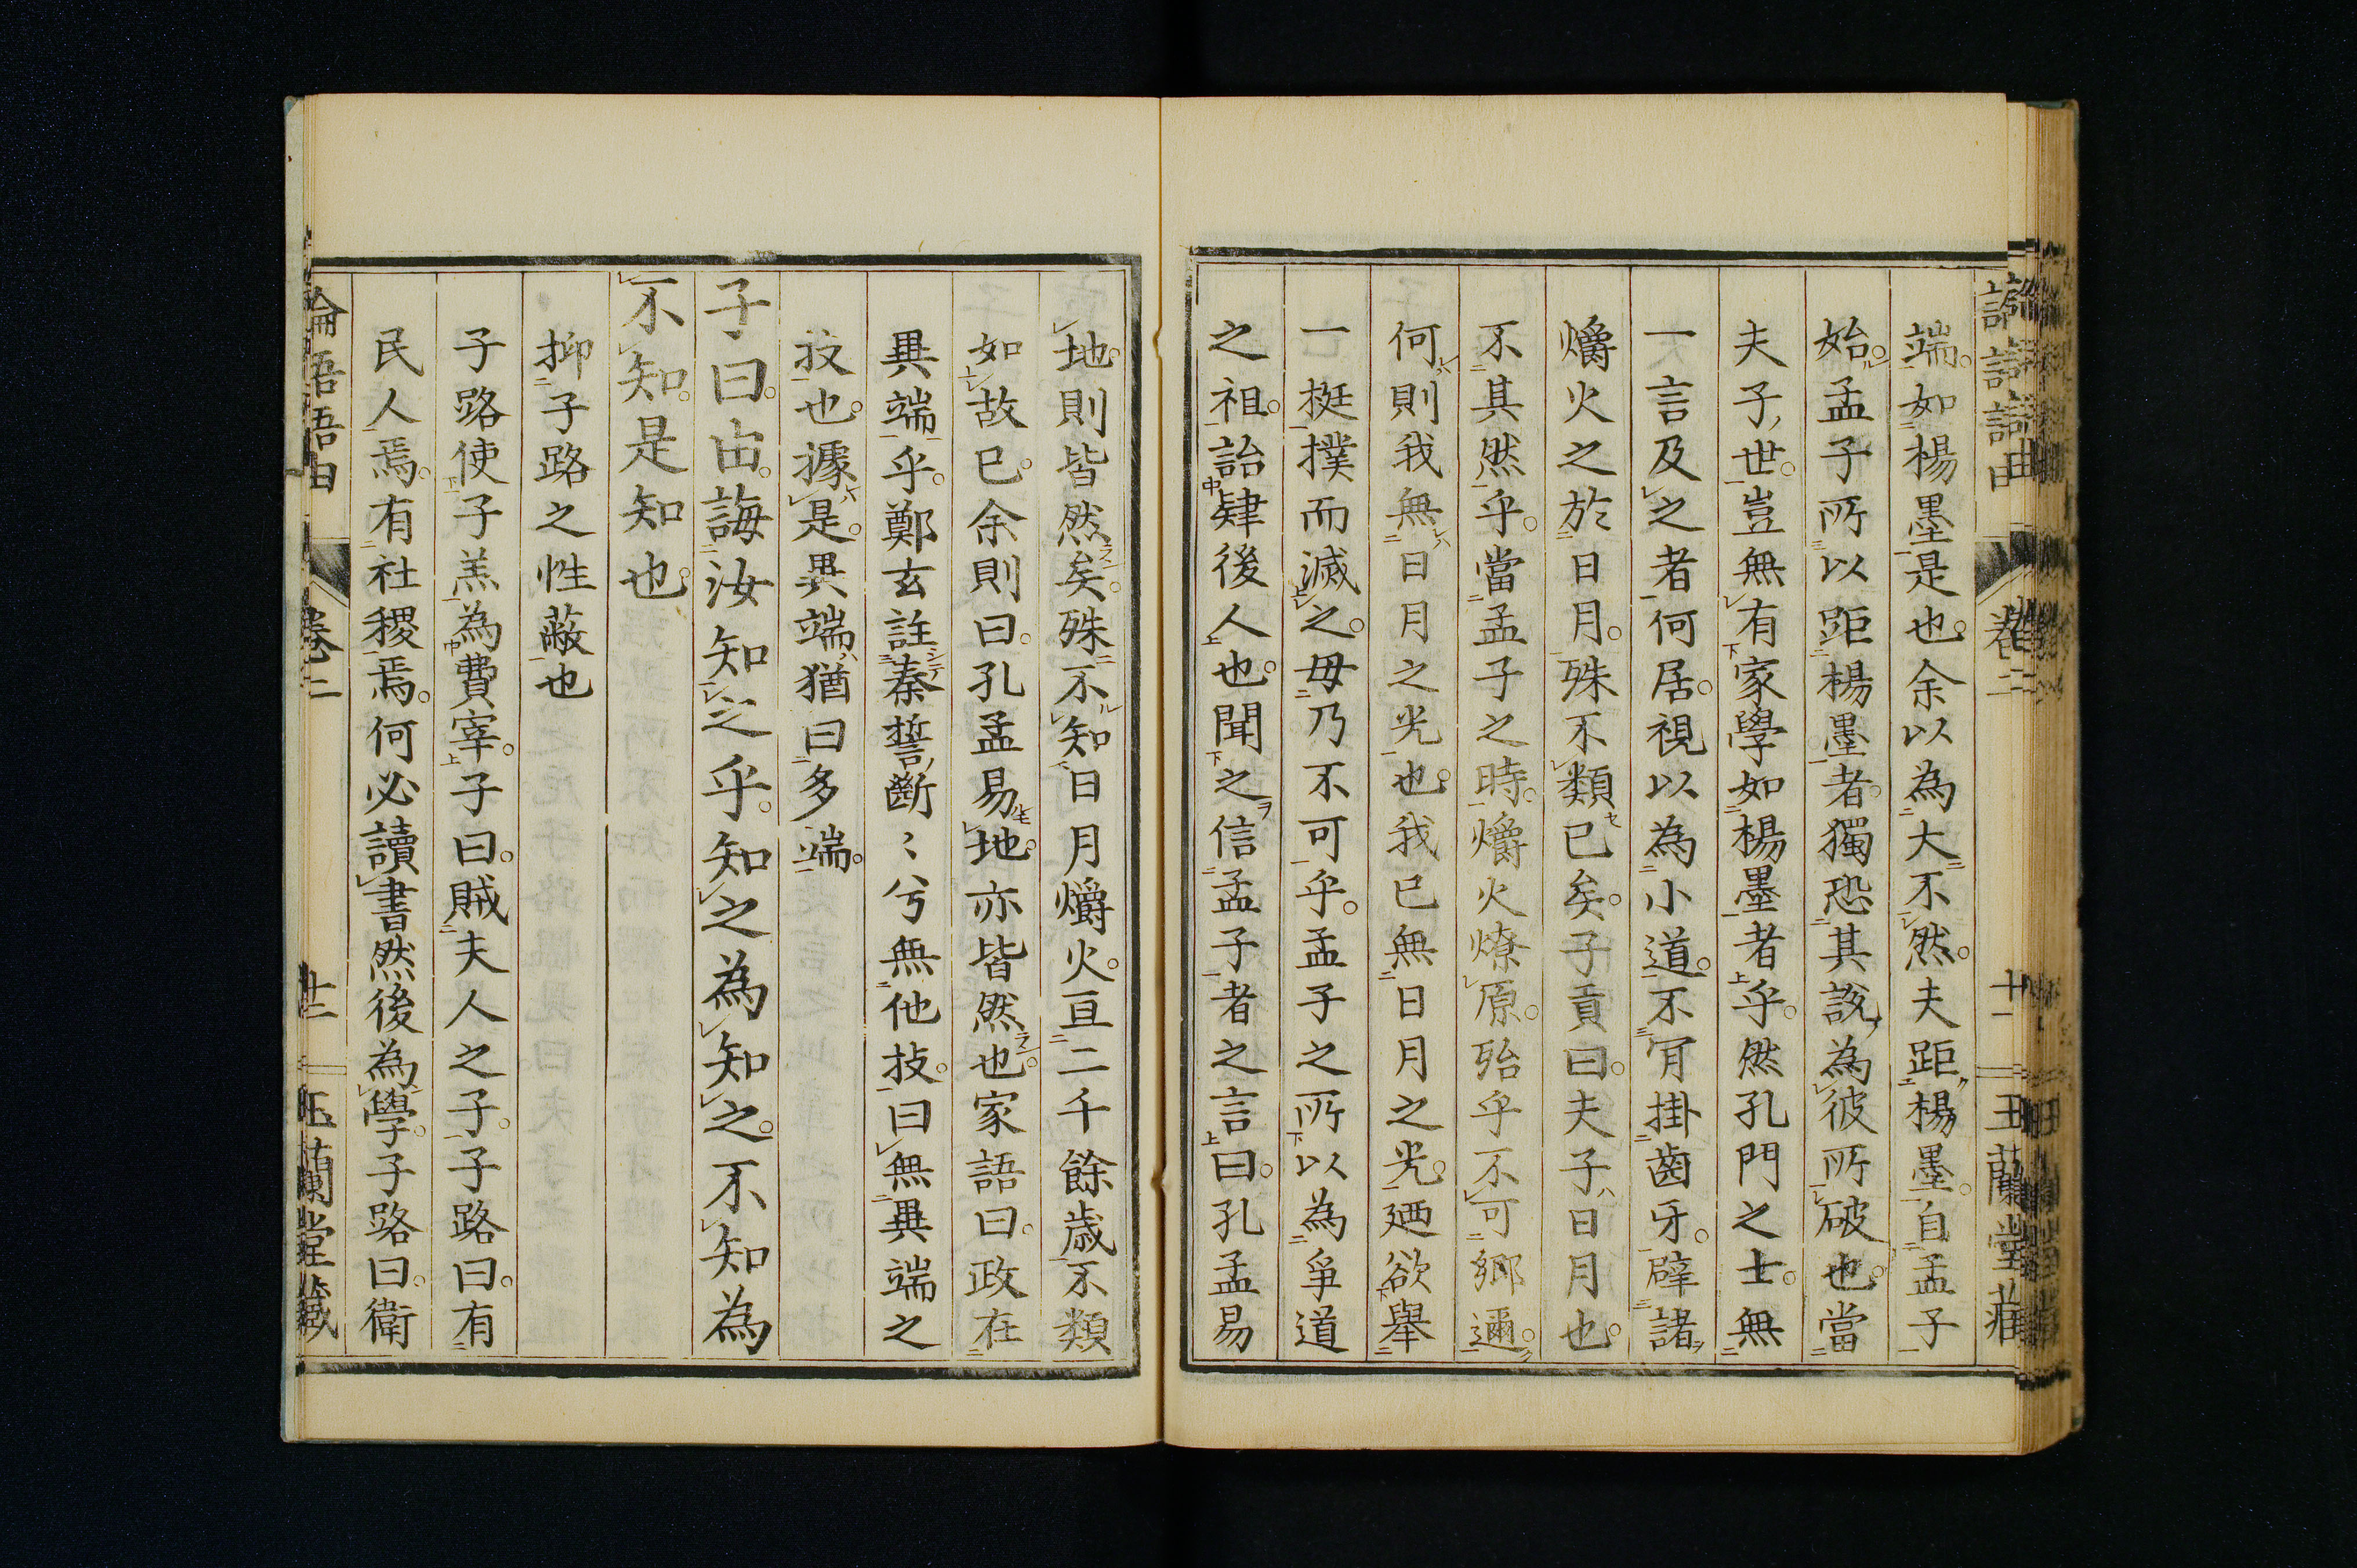 端如楊墨是也余以為大不然夫距楊墨自孟子
始孟子所以距楊墨者獨恐其說為彼所破也當
夫子世豈無有家學如楊墨者乎然孔門之士無
一言及之者何居視以為小道不肎掛齒牙辟諸
爝火之於日月殊不類已矣子貢曰夫子日月也
不其然乎當孟子之時爝火燎原殆乎不可鄉邇
何則我無日月之光也我已無日月之光廼欲舉
一挺撲而滅之毋乃不可乎孟子之所以為爭道
之祖詒肄後人也聞之信孟子者之言曰孔孟易
地則皆然矣殊不知日月爝火亘二千餘歳不類
如故已余則曰孔孟易地亦皆然也家語曰政在
異端乎鄭玄註秦誓斷〻兮無他技曰無異端之
技也據是異端猶曰多端
子曰由誨汝知之乎知之為知之不知為
不知是知也
抑子路之性蔽也
子路使子羔為費宰子曰賊夫人之子子路曰有
民人焉有社稷焉何必讀書然後為學子路曰衛
論語語由 卷二 十二 玉蘭堂藏